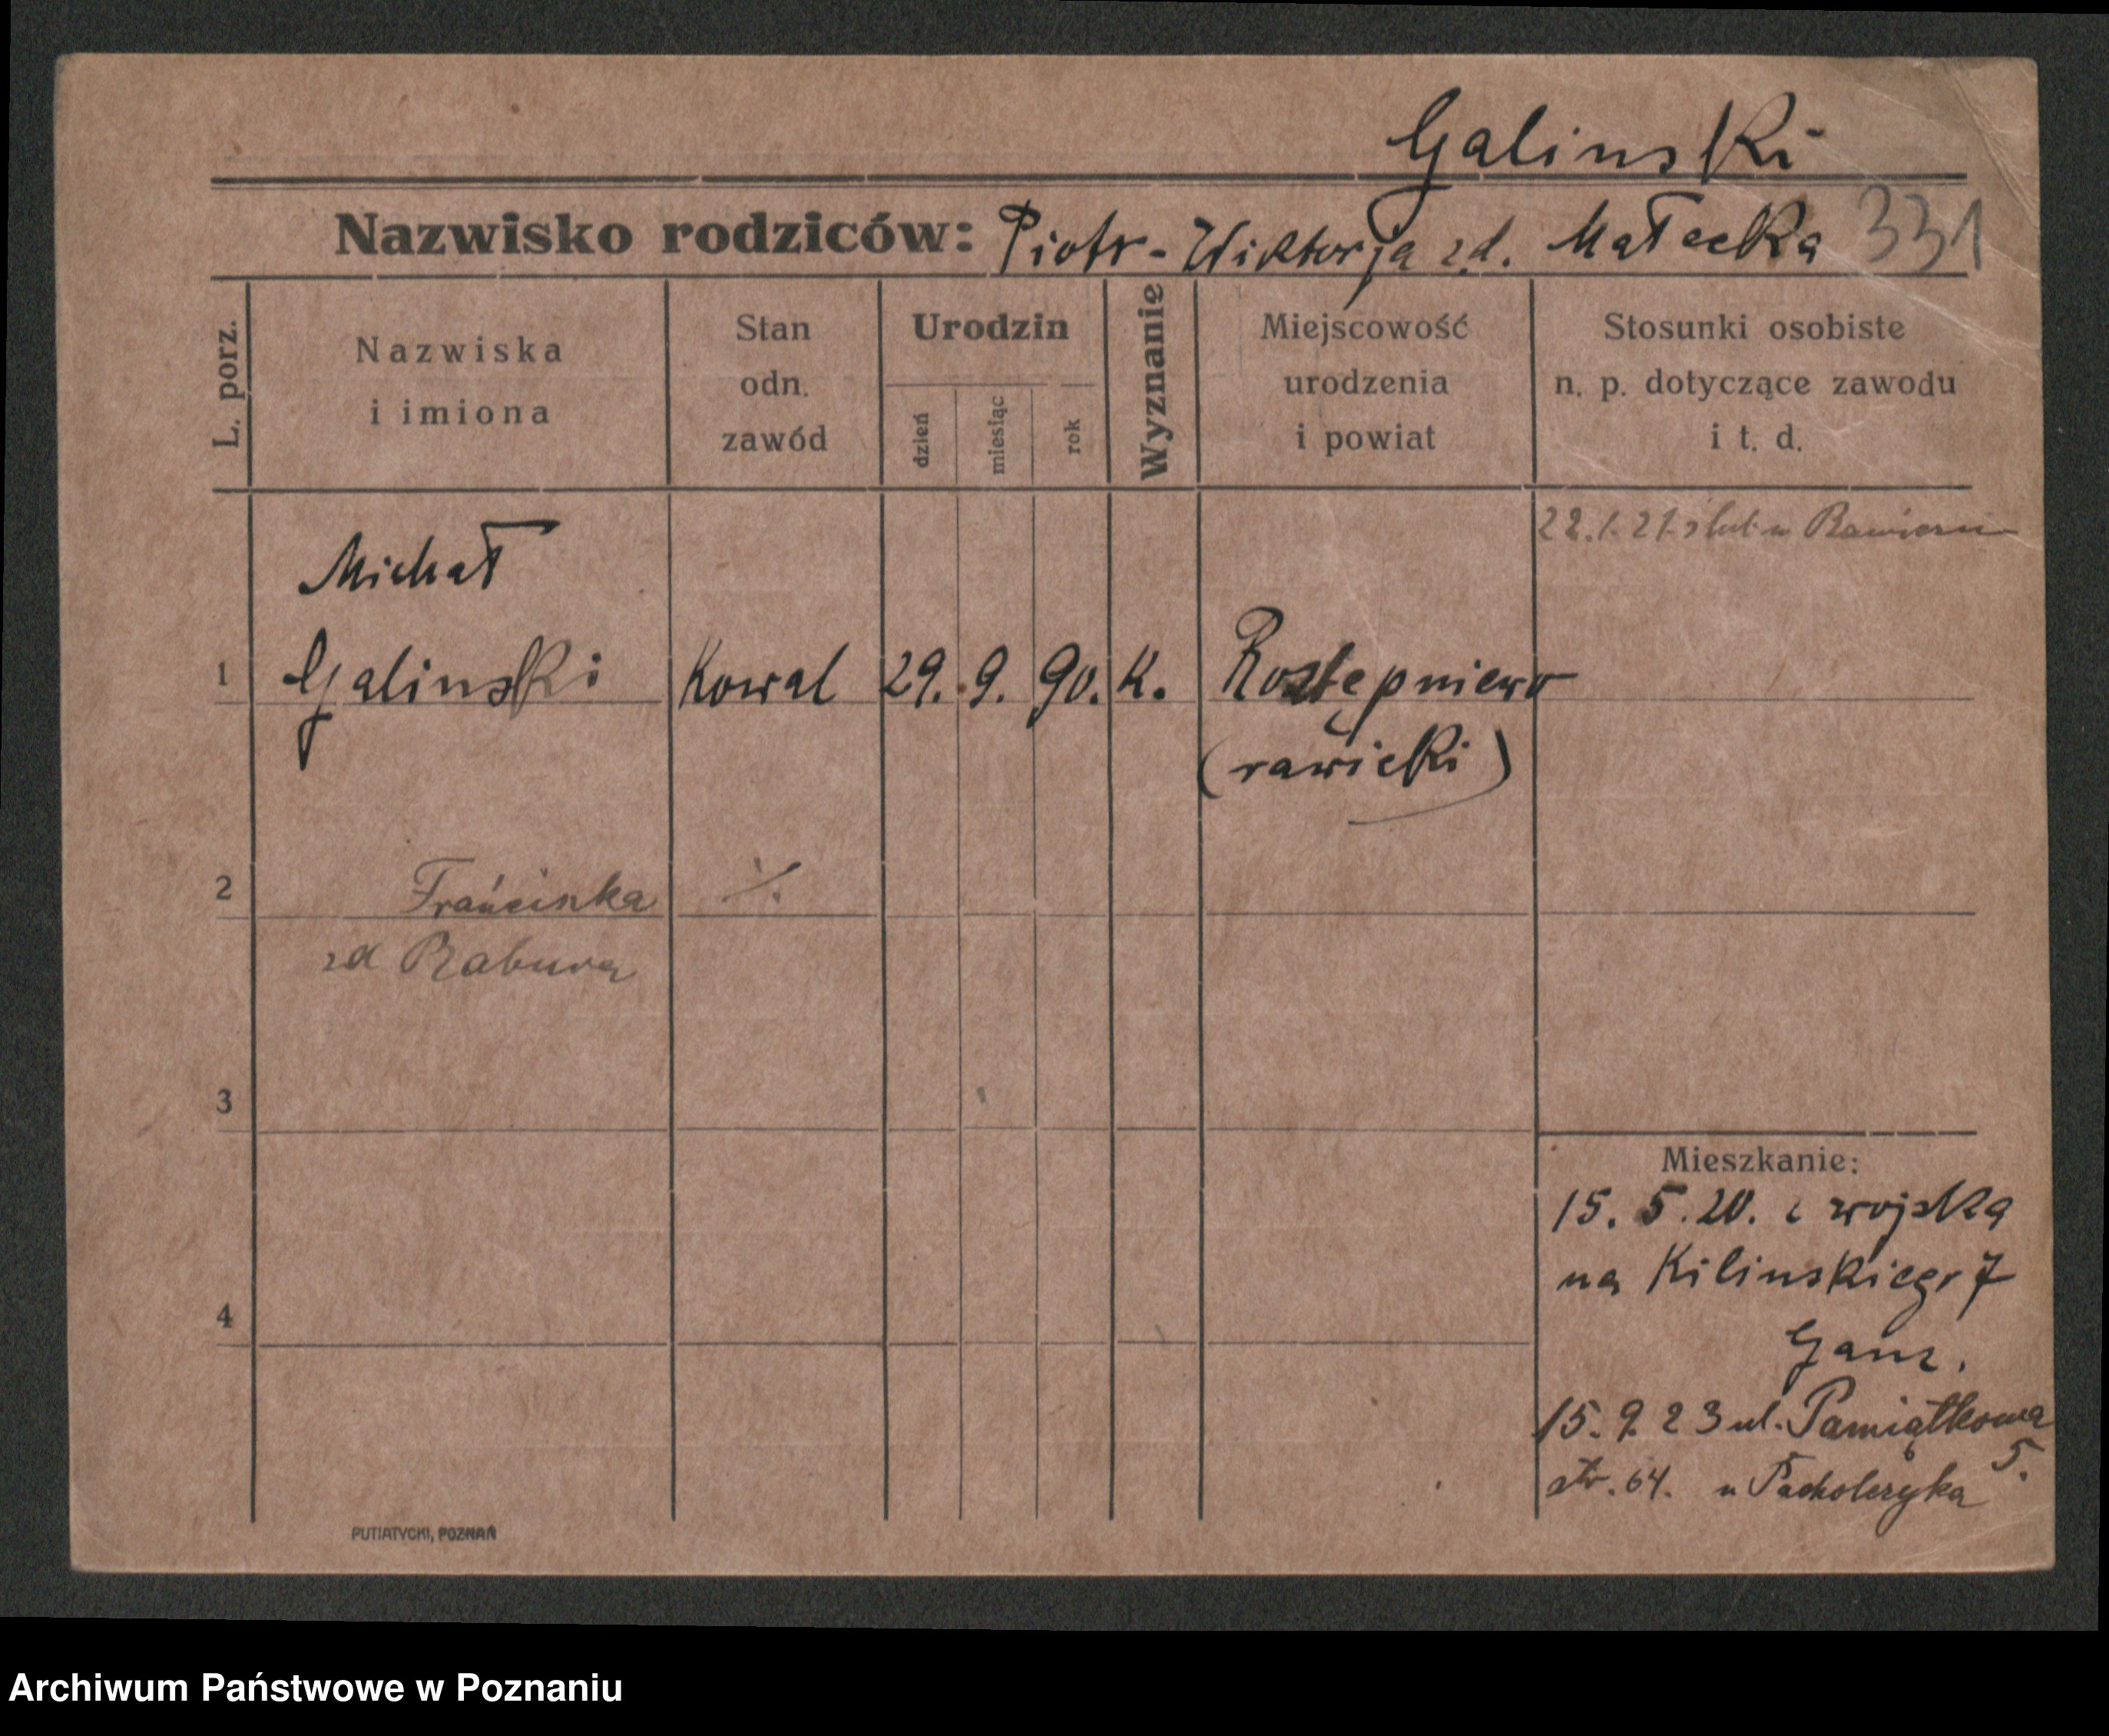 Galinski
Nazwisko rodziców: Piotr - Wiktorja zd. Małecka 331
L. porz.
Nazwiska
i imiona
Stan
odn.
zawód
Urodzin
dzień
miesiąc
rok
Wyznanie
Miejscowość
urodzenia
i powiat
Stosunki osobiste
n. p. dotyczące zawodu
i t. d.
22.1.21 ślub w
Michał
1 Galinski Kowal 29. 9. 90. K. Rostępniewo
(rawicki)
2 Francinka ·/.
zd
3
4
Mieszkanie:
15. 5. 20. z wojska
na Kilinskiego 7
Ganz.
15. 9 23 ul. Pamiątkowa
5.
str. 64. u Pacholczyka
PUTIATYCKI, POZNAŃ
Archiwum Państwowe w Poznaniu